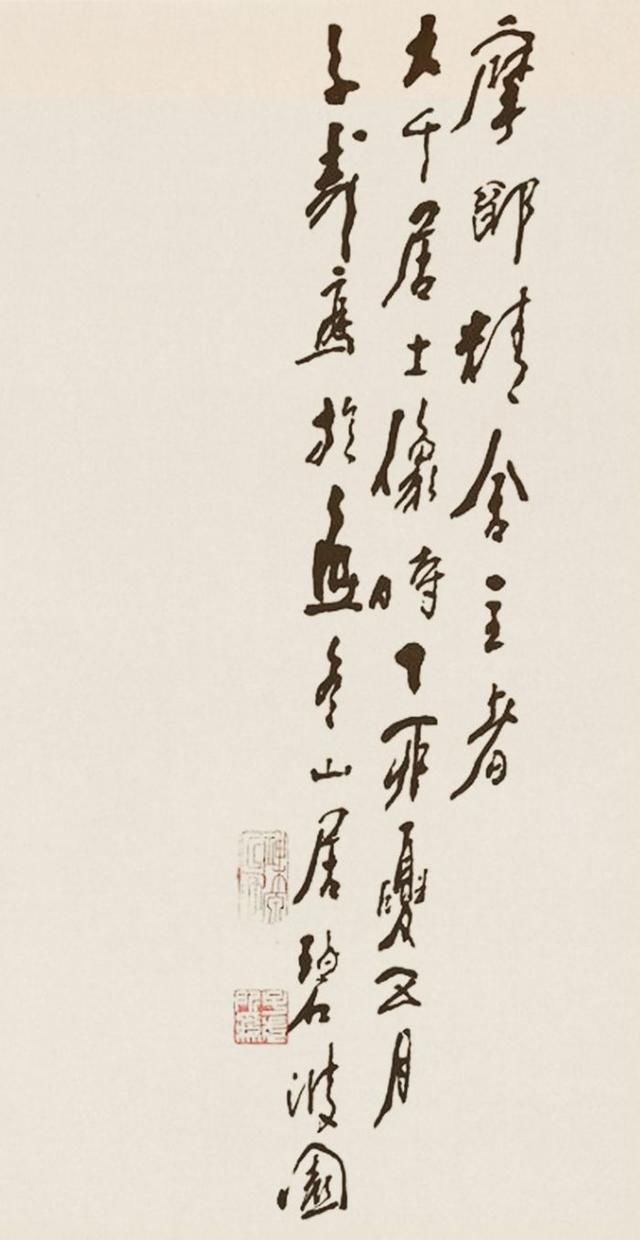 摩耶精舍主者
大千居士像時丁丣夏五月
子寿寫於無冬山居碧波園